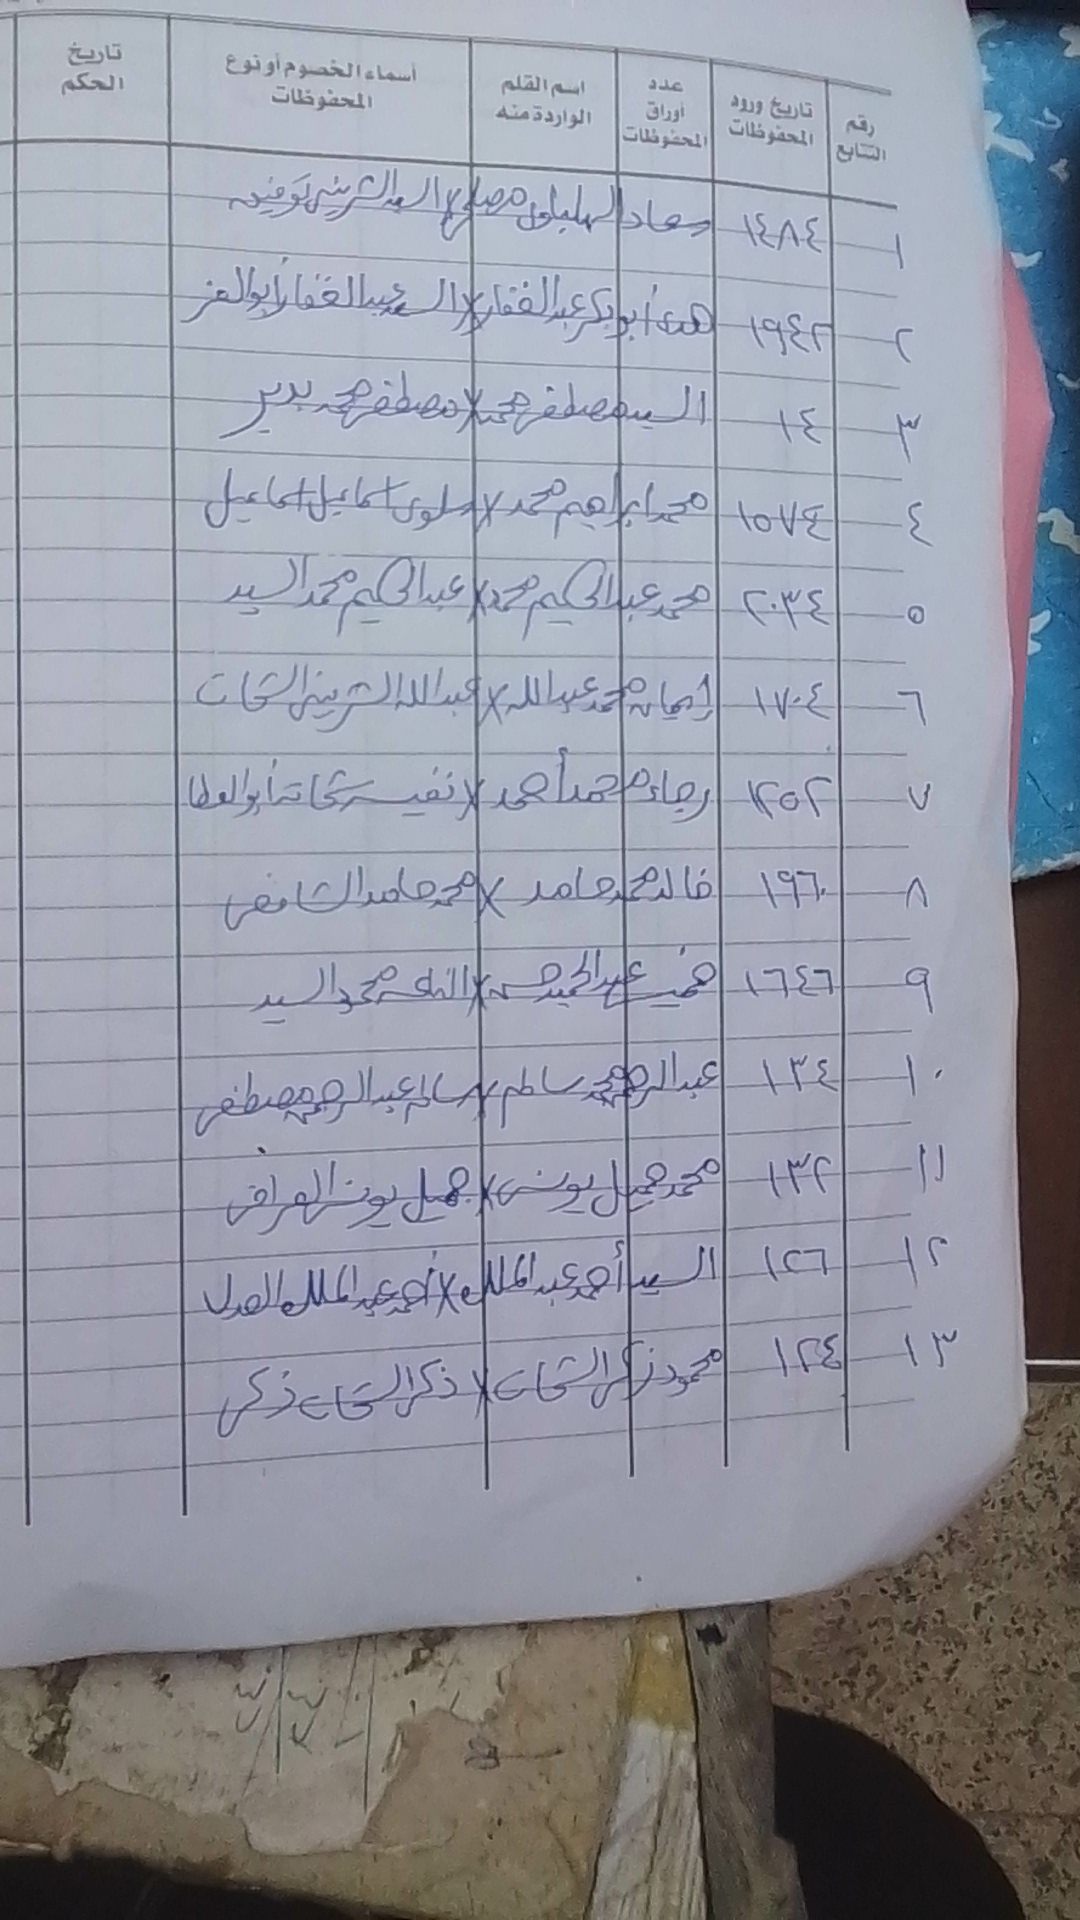 رقم التتابع
تاريخ ورود المحفوظات
عدد أوراق المحفوظات
اسم القلم الواردة منه
أسماء الخصوم أو نوع المحفوظات
تاريخ الحكم
١ ١٤٨٤ سعاد الهلباوى X السيد الشربينى توفيق
٢ ١٩٤٢ هدى أبوبكر عبدالغفار X السيد عبدالغفار أبوالعز
٣ ١٤ السيد مصطفى محمد X مصطفى محمد بدير
٤ ١٥٧٤ محمد ابراهيم محمد X سلوى اسماعيل اسماعيل
٥ ٢٠٣٤ محمد عبدالحكيم محمد X عبدالحكيم محمد السيد
٦ ١٧٠٤ إيمان محمد عبدالله X عبدالله الشربينى الشحات
٧ ١٢٥٢ رجاء محمد أحمد X نفيسه شحاته أبوالعطا
٨ ١٩٦٠ خالد محمد حامد X محمد حامد الشافعى
٩ ١٦٤٦ خميس عبدالحميد حسن X محمد السيد
١٠ ١٣٤ عبدالرحمن محمد سالم X سالم عبدالرحمن مصطفى
١١ ١٣٢ محمد جميل يونس X جميل يونس العراقى
١٢ ١٢٦ السيد أحمد عبدالملك X أحمد عبدالملك العدل
١٣ ١٢٤ محمود زكى الشحات X زكى الشحات زكى